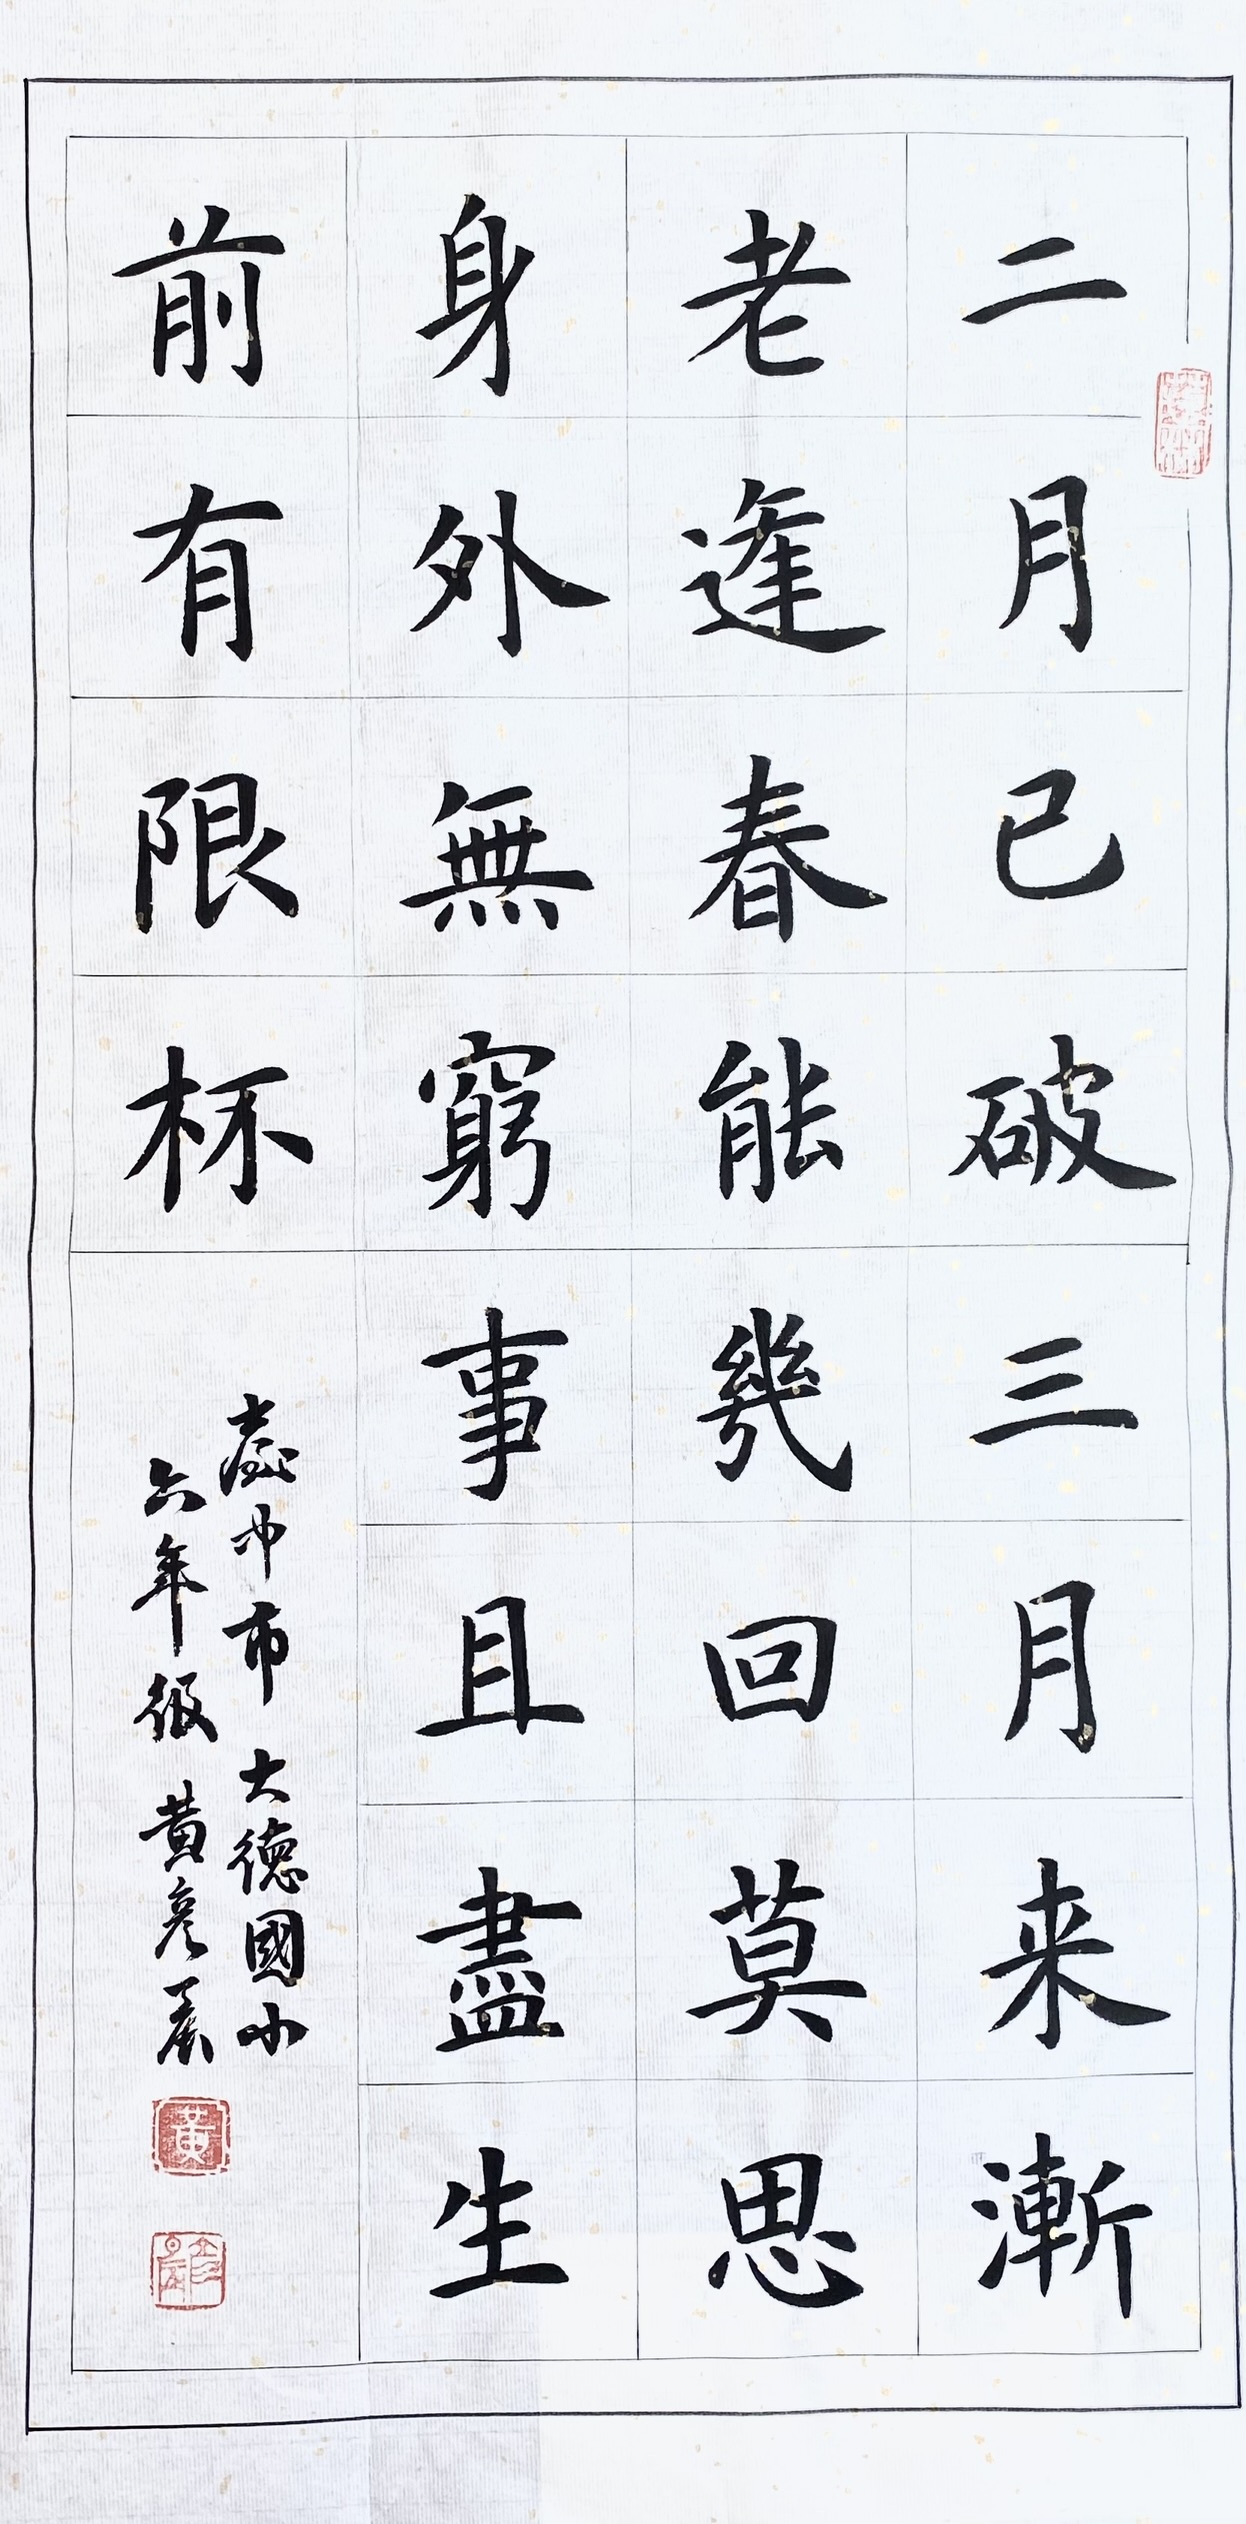 二月已破三月来漸
老逢春能幾回莫思
身外無窮事且盡生
前有限杯
臺中市大德國小
六年級黃彥晨
黃